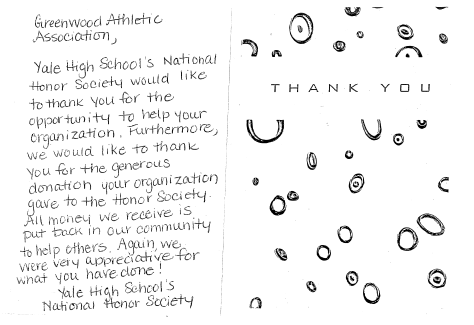 Greenwood Athletic
Association,
Yale High School's National
Honor Society would like
to thank you for the
opportunity to help your
organization. Furthermore,
we would like to thank
you for the generous
donation your organization
gave to the Honor Society.
All money we receive is
put back in our community
to help others. Again, we
were very appreciative for
what you have done!
Yale High School's
National Honor Society
THANK YOU